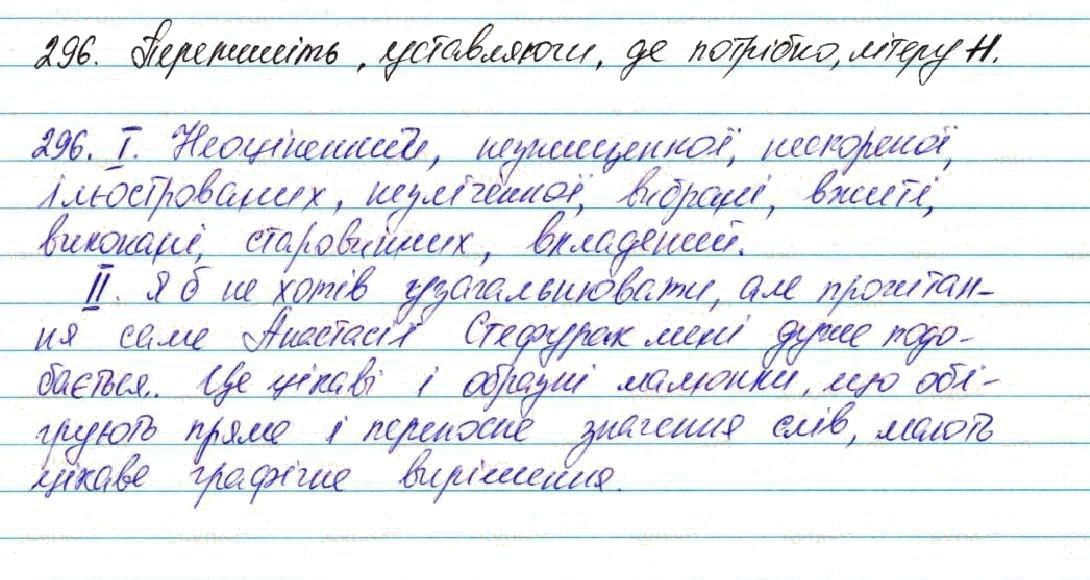 296. Перепишіть, уставляючи, де потрібно, літеру Н.
296. І. Неоціненний, незнищенної, нескореної,
ілюстрованих, незліченної, вибрані, вжиті,
виконані, старовинних, вкладений.
ІІ. Я б не хотів узагальнювати, але прочитан-
ня саме Анастасії Стефурак мені дуже подо-
бається.. Це цікаві і образні малюнки, що обі-
грують пряме і переносне значення слів, мають
цікаве графічне вирішення.